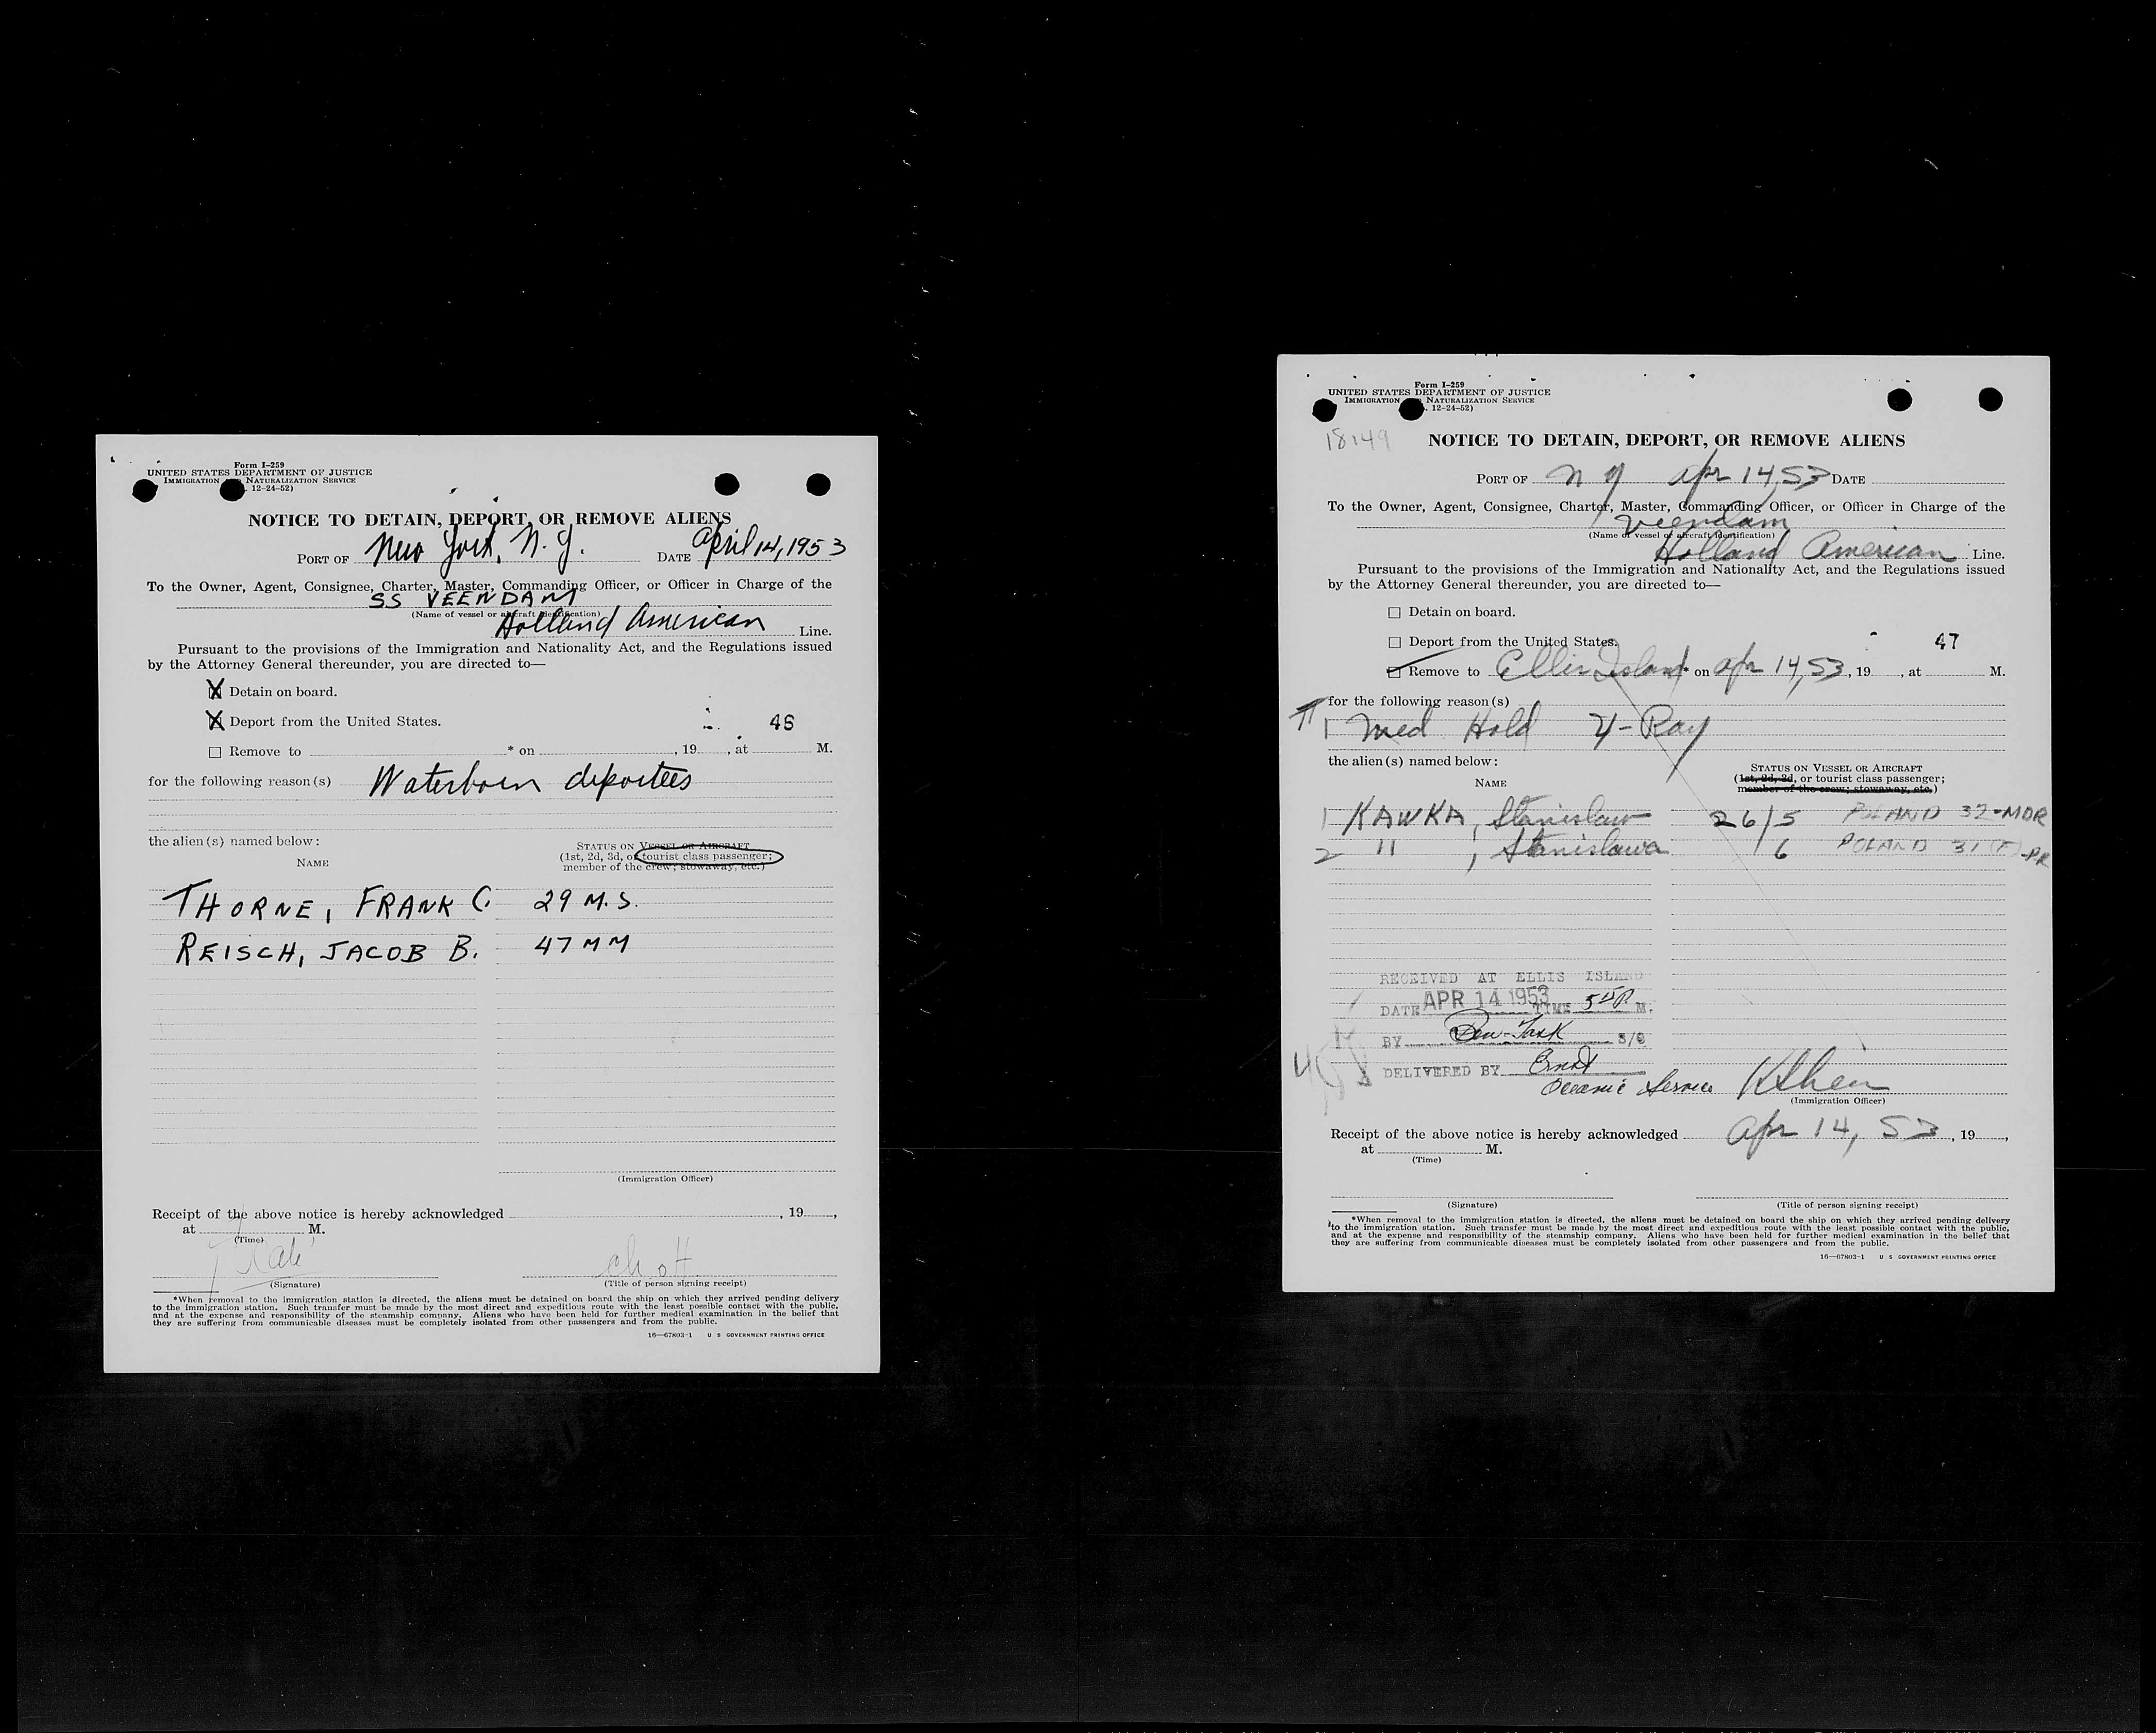 Form I-259
UNITED STATES DEPARTMENT OF JUSTICE
IMMIGRATION NATURALIZATION SERVICE
12-24-52)
NOTICE TO DETAIN, DEPORT, OR REMOVE ALIENS
PORT OF New York, N.Y. DATE April 14, 1953
To the Owner, Agent, Consignee, Charter, Master, Commanding Officer, or Officer in Charge of the
SS VEENDAM
(Name of vessel or aircraft identification)
Holland American Line.
Pursuant to the provisions of the Immigration and Nationality Act, and the Regulations issued
by the Attorney General thereunder, you are directed to—
X Detain on board.
X Deport from the United States. 46
☐ Remove to * on , 19 , at M.
for the following reason(s) Waterborn deportees
the alien(s) named below:
NAME
STATUS ON VESSEL OR AIRCRAFT
(1st, 2d, 3d, or tourist class passenger;
member of the crew; stowaway, etc.)
THORNE, FRANK C. 29 M.S.
REISCH, JACOB B. 47 MM
(Immigration Officer)
Receipt of the above notice is hereby acknowledged , 19 ,
at M.
(Time)
(Signature)
(Title of person signing receipt)
*When removal to the immigration station is directed, the aliens must be detained on board the ship on which they arrived pending delivery
to the immigration station. Such transfer must be made by the most direct and expeditious route with the least possible contact with the public,
and at the expense and responsibility of the steamship company. Aliens who have been held for further medical examination in the belief that
they are suffering from communicable diseases must be completely isolated from other passengers and from the public.
16—67803-1 U S GOVERNMENT PRINTING OFFICE
Form I-259
UNITED STATES DEPARTMENT OF JUSTICE
IMMIGRATION NATURALIZATION SERVICE
. 12-24-52)
18149
NOTICE TO DETAIN, DEPORT, OR REMOVE ALIENS
PORT OF N Y Apr 14, 53 DATE
To the Owner, Agent, Consignee, Charter, Master, Commanding Officer, or Officer in Charge of the
Veendam
(Name of vessel or aircraft identification)
Holland American Line.
Pursuant to the provisions of the Immigration and Nationality Act, and the Regulations issued
by the Attorney General thereunder, you are directed to—
☐ Detain on board.
☐ Deport from the United States. 47
Remove to Ellis Island * on Apr 14, 53, 19 , at M.
for the following reason(s)
1 Med Hold X-Ray
the alien(s) named below:
NAME
STATUS ON VESSEL OR AIRCRAFT
(1st, 2d, 3d, or tourist class passenger;
member of the crew; stowaway, etc.)
1 KAWKA, Stanislaw 26/5 POLAND 32-MDR
2 " , Stanislawa /6 POLAND 31 (F)-PR
RECEIVED AT ELLIS ISLAND
DATE APR 14 1953 TIME M.
BY
DELIVERED BY
Oceanic Service
(Immigration Officer)
Receipt of the above notice is hereby acknowledged Apr 14, 53, 19 ,
at M.
(Time)
(Signature)
(Title of person signing receipt)
*When removal to the immigration station is directed, the aliens must be detained on board the ship on which they arrived pending delivery
to the immigration station. Such transfer must be made by the most direct and expeditious route with the least possible contact with the public,
and at the expense and responsibility of the steamship company. Aliens who have been held for further medical examination in the belief that
they are suffering from communicable diseases must be completely isolated from other passengers and from the public.
16—67803-1 U S GOVERNMENT PRINTING OFFICE